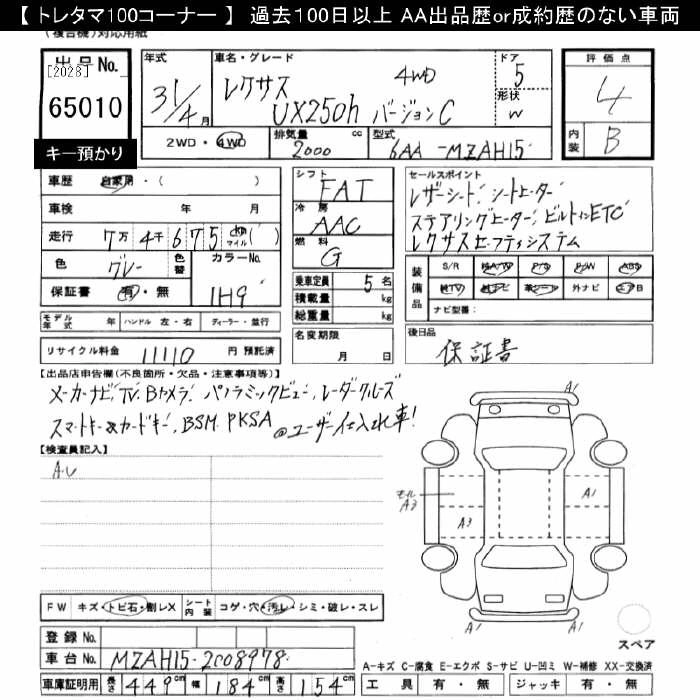 【 トレタマ100コーナー 】 過去100日以上 AA出品歴or成約歴のない車両
(複合機)対応用紙
出品No.
[2028]
65010
キー預かり
年式
31/4月
車名・グレード
レクサス 4WD
UX250h バージョンC
ドア
5
形状
W
評価点
4
内装
B
2WD・4WD
排気量 2000 cc
型式 6AA-MZAH15
車歴 自家用・( )
車検 年 月
走行 7万4千675 km マイル( )
色 グレー 色替
カラーNo. 1H9
保証書 有・無
シフト FAT
冷房 AAC
燃料 G
乗車定員 5名
積載量 kg
総重量 kg
セールスポイント
レザーシート、シートヒーター
ステアリングヒーター、ビルトインETC
レクサスセーフティシステム
装備品
S/R
A/W
P/S
P/W
ABS
TV
ナビ
革シート
外ナビ
エアB
ナビ型番:
モデル年式 年
ハンドル 左・右
ディーラー・並行
リサイクル料金 11110 円 預託済
名変期限 月 日
後日品
保証書
【出品店申告欄(不良箇所・欠品・注意事項等)】
メーカーナビ、TV、Bカメラ、パノラミックビュー、レーダークルーズ
スマートキー&カードキー、BSM、PKSA @ユーザー仕入れ車!
【検査員記入】
AU
A1
モル
A3
A3
A1
A1
A1
スペア
FW キズ・トビ石・割レX
シート内装 コゲ・穴・汚レ・シミ・破レ・スレ
登録 No.
車台 No. MZAH15-2008978
車庫証明用 長さ 449cm 幅 184cm 高さ 154cm
A-キズ C-腐食 E-エクボ S-サビ U-凹ミ W-補修 XX-交換済
工具 有・無 ジャッキ 有・無